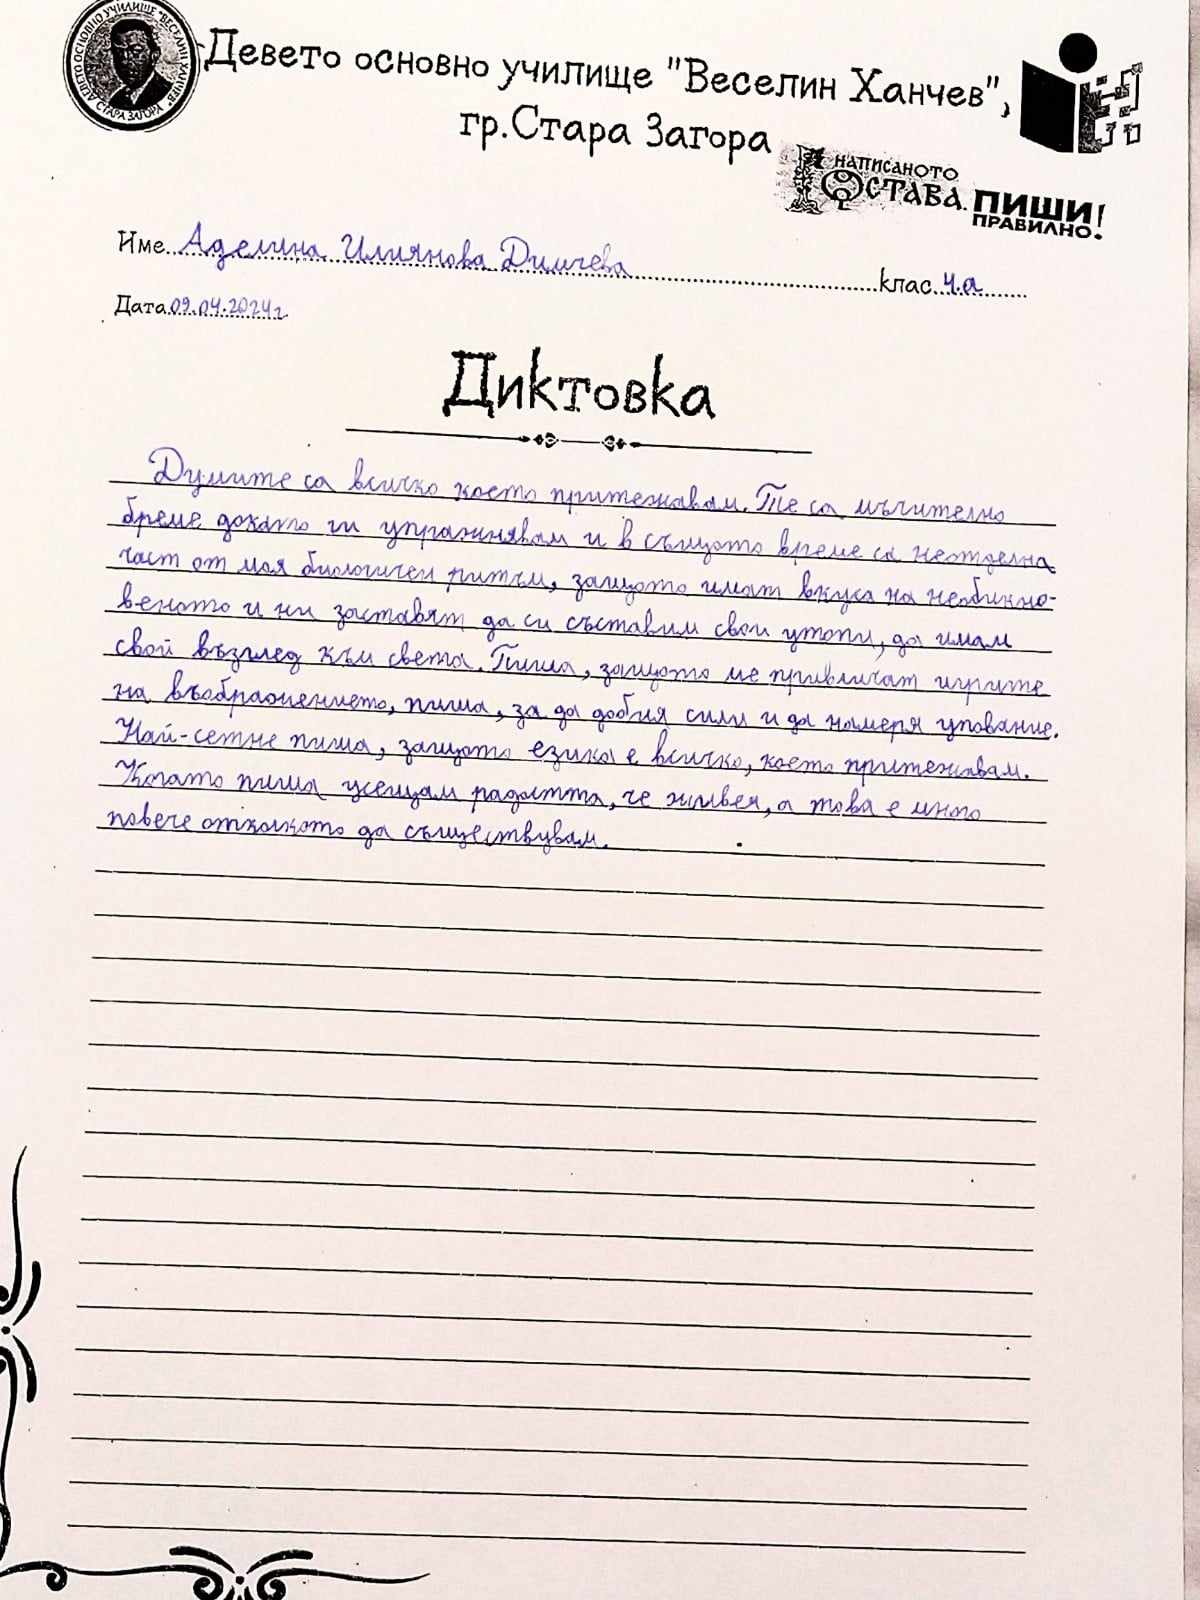 ДЕВЕТО ОСНОВНО УЧИЛИЩЕ "ВЕСЕЛИН ХАНЧЕВ" СТАРА ЗАГОРА
Девето основно училище "Веселин Ханчев",
гр.Стара Загора
НАПИСАНОТО
ОСТАВА. ПИШИ
ПРАВИЛНО!
Име Аделина Илиянова Димчева клас 4.а
Дата 09.04.2024г.
Диктовка
Думите са всичко което притежавам. Те са мъчително
бреме докато ги упражнявам и в същото време са неотделна
част от моя биологичен ритъм, защото имат вкуса на необикно-
веното и ни заставят да си съставим свои утопи, да имам
свой възглед към света. Пиша, защото ме привличат игрите
на въображението, пиша, за да добия сили и да намеря упование.
Най-сетне пиша, защото езика е всичко, което притежавам.
Когато пиша усещам радостта, че живея, а това е много
повече отколкото да съществувам.